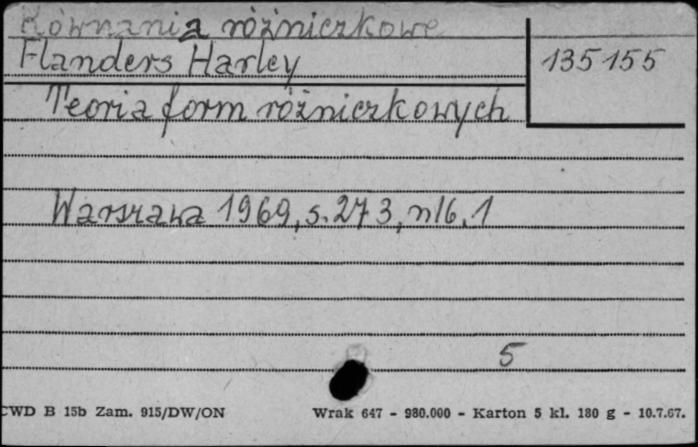 Równania różniczkowe
Flanders Harley
135155
Teoria form różniczkowych
Warszawa 1969, s. 273, nlb. 1
5
CWD B 15b Zam. 915/DW/ON
Wrak 647 - 980.000 - Karton 5 kl. 180 g - 10.7.67.